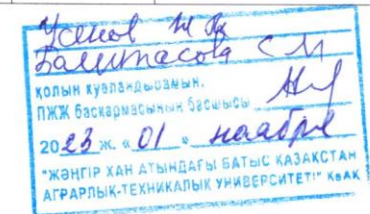 Усенов Н К
Балжтасова С М
ҚОЛЫН КУӘЛАНДЫРАМЫН.
ПЖЖ басқармасының басшысы
2023 ж. «01» ноября
"ЖӘҢГІР ХАН АТЫНДАҒЫ БАТЫС ҚАЗАҚСТАН
АГРАРЛЫҚ-ТЕХНИКАЛЫҚ УНИВЕРСИТЕТІ" КеАҚ